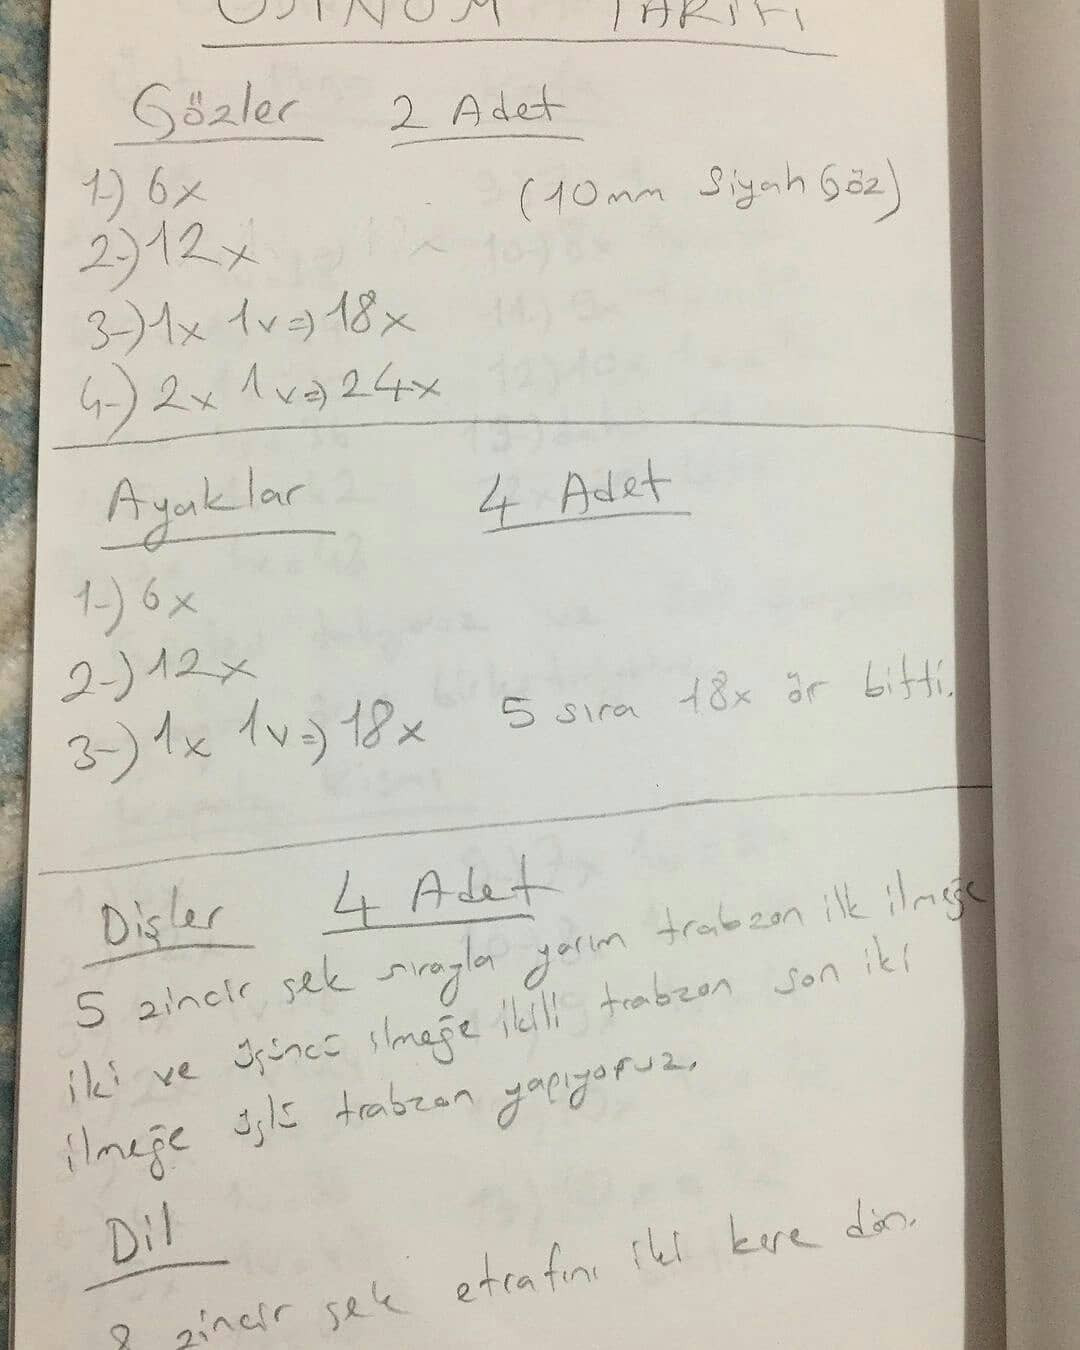 TARİFİ
Gözler 2 Adet
1-) 6x (10mm Siyah Göz)
2-) 12x
3-) 1x 1v => 18x
4-) 2x 1v => 24x
Ayaklar 4 Adet
1-) 6x
2-) 12x
3-) 1x 1v => 18x 5 sıra 18x ör bitti.
Dişler 4 Adet
5 zincir çek sırayla yarım trabzan ilk ilmeğe
iki ve üçüncü ilmeğe ikili trabzan son iki
ilmeğe üçlü trabzan yapıyoruz.
Dil
8 zincir çek etrafını iki kere dön.